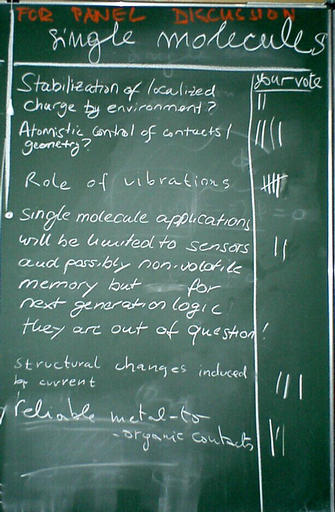 FOR PANEL DISCUSSION
single molecules
your vote
Stabilization of localized
charge by environment?
Atomistic control of contacts /
geometry?
Role of vibrations
• single molecule applications
will be limited to sensors
and possibly non-volatile
memory but — for
next generation logic
they are out of question!
structural changes induced
by current
reliable metal-to
-organic contacts